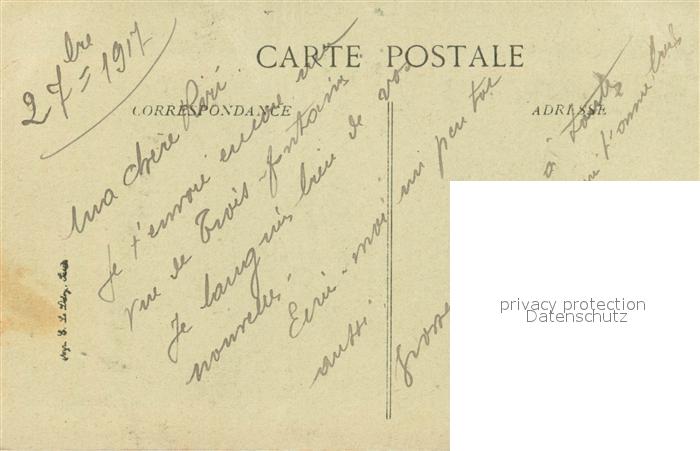 CARTE POSTALE
CORRESPONDANCE
ADRESSE
2 7bre = 1917
Ma chère
Je t'envoie encore une
vue de Trois-fontaines
Je languis bien de vos
nouvelles.
Ecris-moi un peu toi
aussi.
Grosse
à toutes
privacy protection
Datenschutz